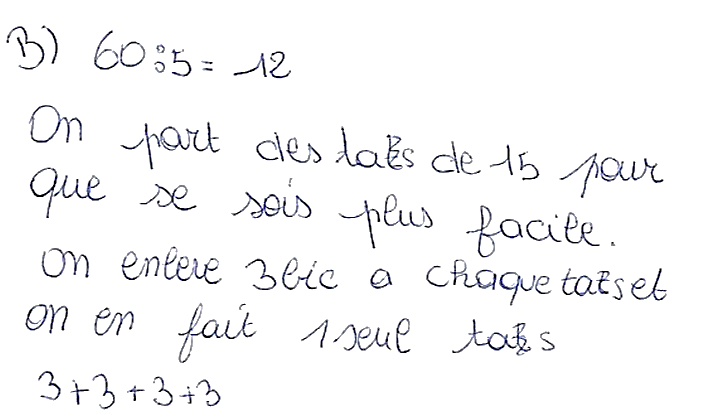 B) 60:5 = 12
On part des tats de 15 pour
que se sois plus facile.
on enlere 3 bic a chaque tatset
on en fait 1 seul tats
3+3+3+3